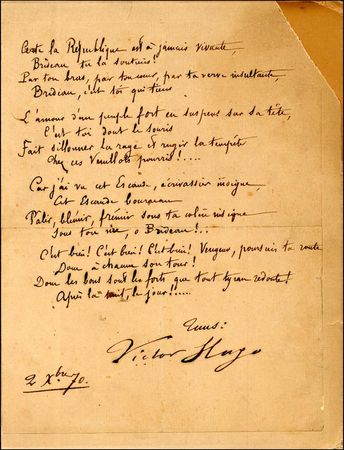 Certe la République est à jamais vivante,
Brideau tu la soutiens!
Par ton bras, par ton cœur, par ta verve insultante,
Brideau, c'est toi qui tiens
L'amour d'un peuple fort en suspens sur sa tête,
C'est toi dont le souris
Fait sillonner la rage et rugir la tempête
Chez ces Veuillots pourris!....
Car j'ai vu cet Escande, écrivassier insigne,
Cet Escande bourreau
Pâlir, blêmir, frémir sous ta colère insigne
Sous ton rire, o Brideau!...
C'est bien! C'est bien! C'est bien! Vengeur, poursuis ta route
Donc à chacun son tour!
Donc les bons sont les forts que tout tyran redoute!
Après la nuit, le jour!.....
Victor Hugo
2 Xbre 70.